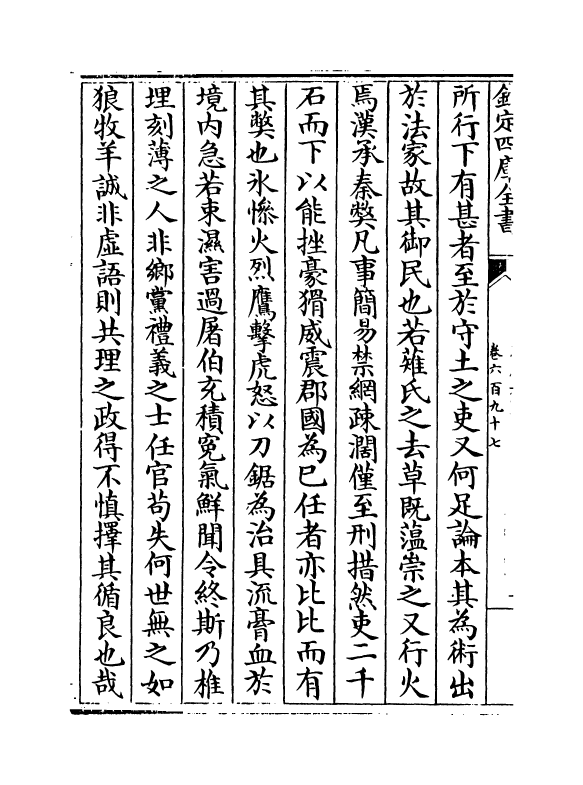 欽定四庫全書
卷六百九十七
所行下有甚者至於守土之吏又何足論本其為術出
於法家故其御民也若薙氏之去草既薀崇之又行火
焉漢承秦獘凡事簡易禁網疎濶僅至刑措然吏二千
石而下以能挫豪猾威震郡國為已任者亦比比而有
其獘也氷慘火烈鷹擊虎怒以刀鋸為治具流膏血於
境内急若束濕害過屠伯充積寃氣鮮聞令終斯乃椎
埋刻薄之人非鄉黨禮義之士任官苟失何世無之如
狼牧羊誠非虛語則共理之政得不慎擇其循良也哉